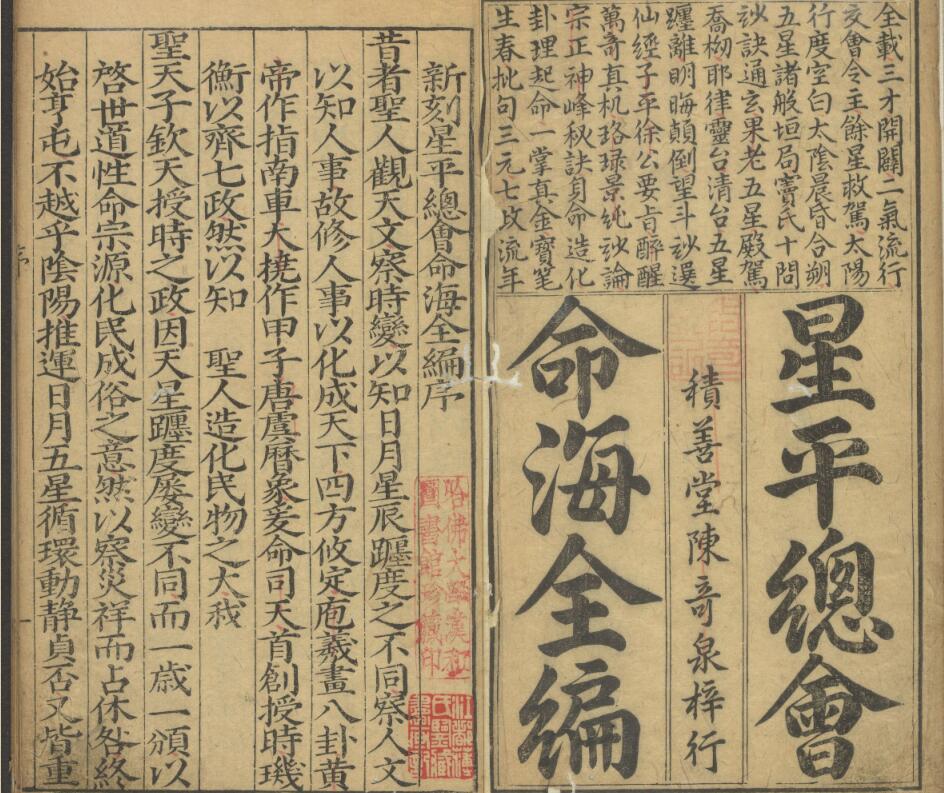 全載三才開闢二氣流行
交會令主餘星救駕太陽
行度空白太陰晨昏合朔
五星諸般垣局竇氏十問
玅訣通玄果老五星殿駕
喬拗耶律靈台清台五星
躔離明晦顛倒望斗玅選
仙經子平徐公要旨醉醒
萬竒真机珞琭景純玅論
宗正神峰秘訣貟命造化
卦理起命一掌真金寳笔
生春批句三元七政流年
星平總會
積善堂陳竒泉梓行
命海全編
新刻星平總會命海全編序
昔者聖人觀天文察時變以知日月星辰躔度之不同察人文
以知人事故修人事以化成天下四方攸定庖羲畫八卦黃
帝作指南車大撓作甲子唐虞曆象爰命司天首創授時璣
衡以齊七政然以知　聖人造化民物之大㦲
聖天子欽天授時之政因天星躔度屡變不同而一歳一頒以
啓世道性命宗源化民成俗之意然以察災祥而占休咎終
始亨屯不越乎陰陽推運日月五星循環動静貞否又皆重
序
一
哈佛大學漢和
圖書館珍藏印